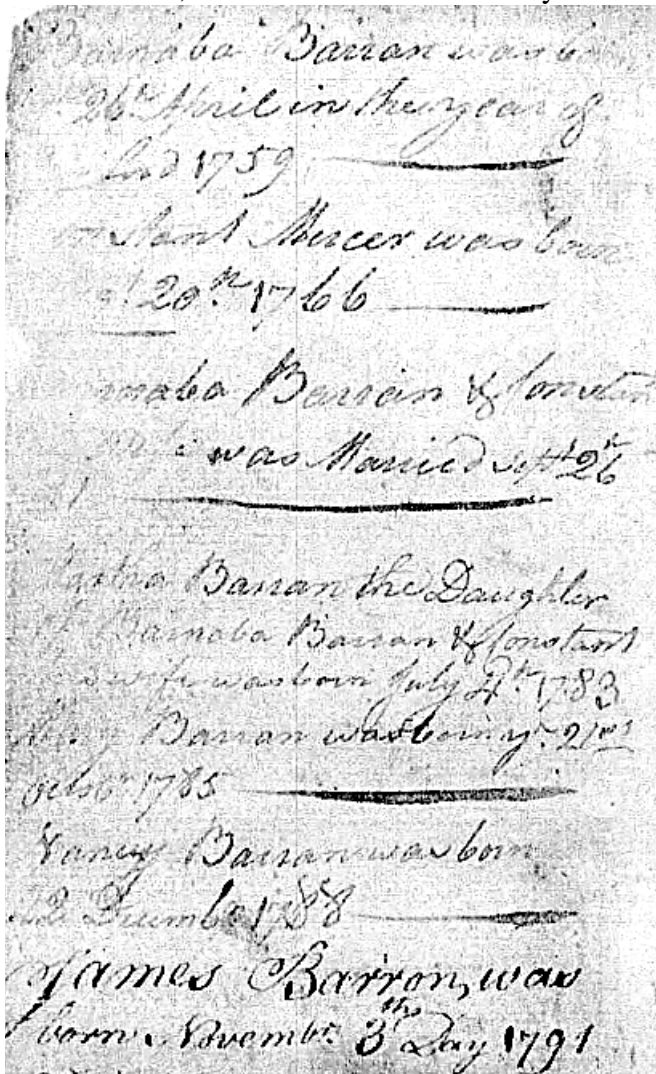 Barnaba Barran was born
26th April in the year of
Lord 1759
Mercer was born
20th 1766
Barran & Constant
was Married Sept 26
Barran the Daughter
of Barnaba Barran & Constant
wife was born July 4th 1783
Barran was born ye 21st
1785
Nancy Barran was born
1788
James Barron, was
born Novembr. 3ths Day 1791